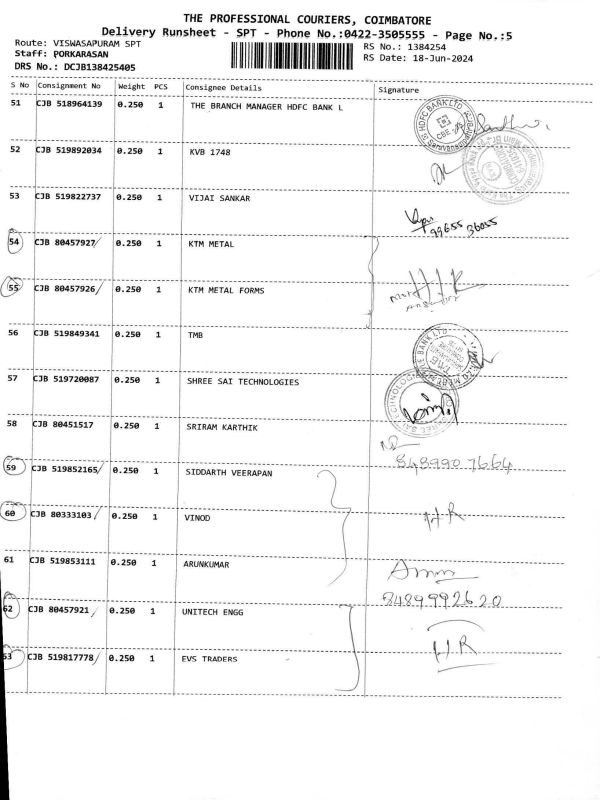 THE PROFESSIONAL COURIERS, COIMBATORE
Delivery Runsheet - SPT - Phone No.:0422-3505555 - Page No.:5
Route: VISWASAPURAM SPT
Staff: PORKARASAN
DRS No.: DCJB138425405
RS No.: 1384254
RS Date: 18-Jun-2024
S No Consignment No Weight PCS Consignee Details Signature
51 CJB 518964139 0.250 1 THE BRANCH MANAGER HDFC BANK L
HDFC BANK LTD
CBE
52 CJB 519892034 0.250 1 KVB 1748
53 CJB 519822737 0.250 1 VIJAI SANKAR
99655 36055
54 CJB 80457927/ 0.250 1 KTM METAL
55 CJB 80457926/ 0.250 1 KTM METAL FORMS
H.R
56 CJB 519849341 0.250 1 TMB
57 CJB 519720087 0.250 1 SHREE SAI TECHNOLOGIES
58 CJB 80451517 0.250 1 SRIRAM KARTHIK
848990 7664
59 CJB 519852165/ 0.250 1 SIDDARTH VEERAPAN
60 CJB 80333103/ 0.250 1 VINOD
H.R
61 CJB 519853111 0.250 1 ARUNKUMAR
8489992620
62 CJB 80457921/ 0.250 1 UNITECH ENGG
63 CJB 519817778/ 0.250 1 EVS TRADERS
H.R